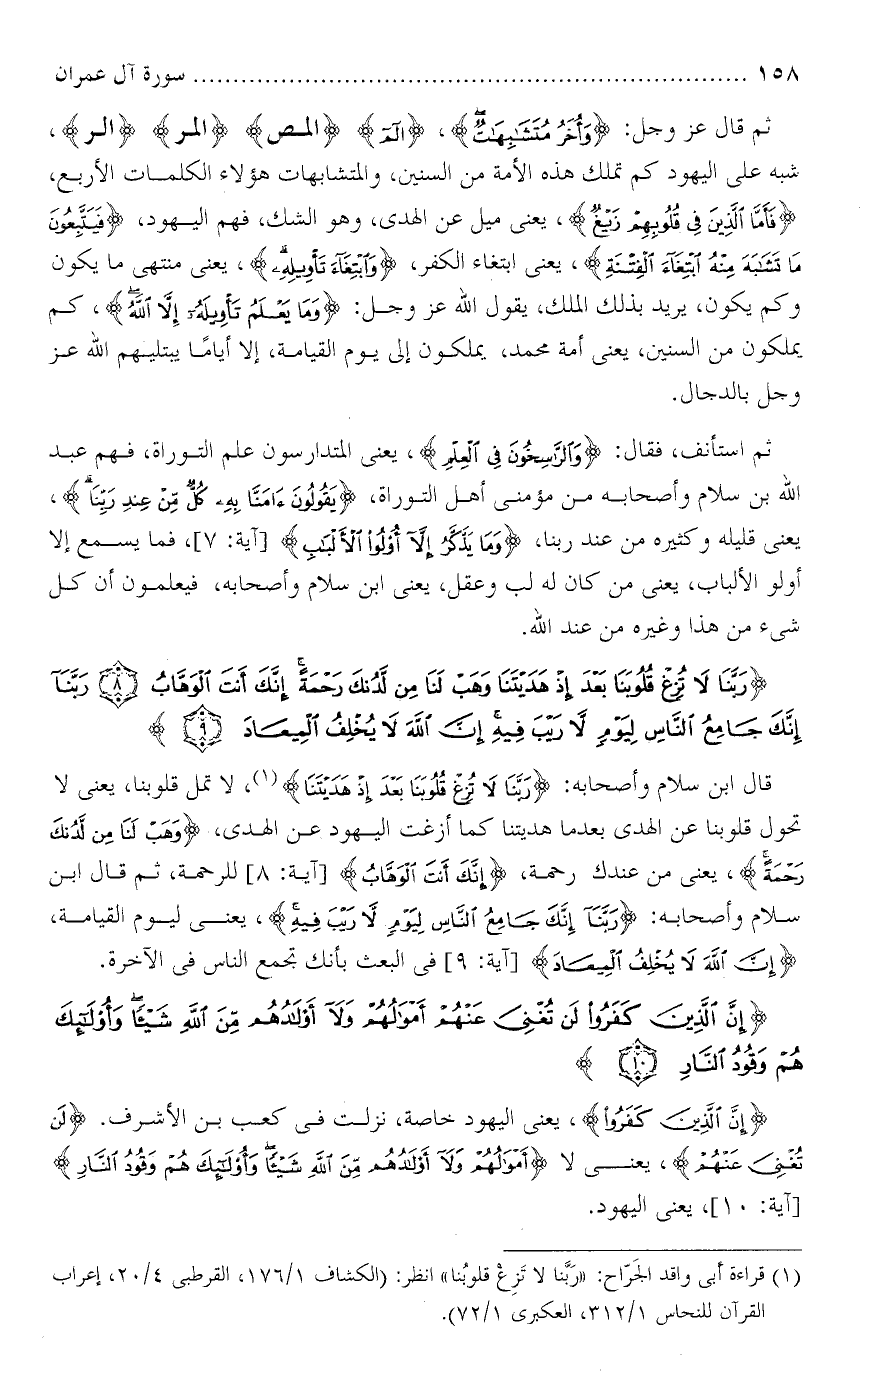 ١٥٨ ..................................................................... سورة آل عمران
ثم قال عز وجل: ﴿وَأُخَرُ مُتَشَابِهَاتٌ﴾، ﴿الٓمٓ﴾ ﴿المص﴾ ﴿المر﴾ ﴿الر﴾،
شبه على اليهود كم تملك هذه الأمة من السنين، والمتشابهات هؤلاء الكلمات الأربع،
﴿فَأَمَّا الَّذِينَ فِي قُلُوبِهِمْ زَيْغٌ﴾، يعنى ميل عن الهدى، وهو الشك، فهم اليهود، ﴿فَيَتَّبِعُونَ
مَا تَشَابَهَ مِنْهُ ابْتِغَاءَ الْفِتْنَةِ﴾، يعنى ابتغاء الكفر، ﴿وَابْتِغَاءَ تَأْوِيلِهِ﴾، يعنى منتهى ما يكون
وكم يكون، يريد بذلك الملك، يقول الله عز وجل: ﴿وَمَا يَعْلَمُ تَأْوِيلَهُ إِلَّا اللَّهُ﴾، كم
يملكون من السنين، يعنى أمة محمد، يملكون إلى يوم القيامة، إلا أيامًا يبتليهم الله عز
وجل بالدجال.
ثم استأنف، فقال: ﴿وَالرَّاسِخُونَ فِي الْعِلْمِ﴾، يعنى المتدارسون علم التوراة، فهم عبد
الله بن سلام وأصحابه من مؤمنى أهل التوراة، ﴿يَقُولُونَ ءَامَنَّا بِهِ كُلٌّ مِّنْ عِندِ رَبِّنَا﴾،
يعنى قليله وكثيره من عند ربنا، ﴿وَمَا يَذَّكَّرُ إِلَّا أُوْلُوا الْأَلْبَابِ﴾ [آية: ٧]، فما يسمع إلا
أولو الألباب، يعنى من كان له لب وعقل، يعنى ابن سلام وأصحابه، فيعلمون أن كل
شىء من هذا وغيره من عند الله.
﴿رَبَّنَا لَا تُزِغْ قُلُوبَنَا بَعْدَ إِذْ هَدَيْتَنَا وَهَبْ لَنَا مِن لَّدُنكَ رَحْمَةً إِنَّكَ أَنتَ الْوَهَّابُ ٨ رَبَّنَا
إِنَّكَ جَامِعُ النَّاسِ لِيَوْمٍ لَّا رَيْبَ فِيهِ إِنَّ اللَّهَ لَا يُخْلِفُ الْمِيعَادَ ٩﴾
قال ابن سلام وأصحابه: ﴿رَبَّنَا لَا تُزِغْ قُلُوبَنَا بَعْدَ إِذْ هَدَيْتَنَا﴾(١)، لا تمل قلوبنا، يعنى لا
تحول قلوبنا عن الهدى بعدما هديتنا كما أزغت اليهود عن الهدى، ﴿وَهَبْ لَنَا مِن لَّدُنكَ
رَحْمَةً﴾، يعنى من عندك رحمة، ﴿إِنَّكَ أَنتَ الْوَهَّابُ﴾ [آية: ٨] للرحمة، ثم قال ابن
سلام وأصحابه: ﴿رَبَّنَا إِنَّكَ جَامِعُ النَّاسِ لِيَوْمٍ لَّا رَيْبَ فِيهِ﴾، يعنى ليوم القيامة،
﴿إِنَّ اللَّهَ لَا يُخْلِفُ الْمِيعَادَ﴾ [آية: ٩] فى البعث بأنك تجمع الناس فى الآخرة.
﴿إِنَّ الَّذِينَ كَفَرُوا لَن تُغْنِيَ عَنْهُمْ أَمْوَالُهُمْ وَلَا أَوْلَادُهُم مِّنَ اللَّهِ شَيْئًا وَأُوْلَٰئِكَ
هُمْ وَقُودُ النَّارِ ١٠﴾
﴿إِنَّ الَّذِينَ كَفَرُوا﴾، يعنى اليهود خاصة، نزلت فى كعب بن الأشرف. ﴿لَن
تُغْنِيَ عَنْهُمْ﴾، يعنى لا ﴿أَمْوَالُهُمْ وَلَا أَوْلَادُهُم مِّنَ اللَّهِ شَيْئًا وَأُوْلَٰئِكَ هُمْ وَقُودُ النَّارِ﴾
[آية: ١٠]، يعنى اليهود.
(١) قراءة أبى واقد الجَرّاح: «ربَّنا لا تَزِغْ قلوبُنا» انظر: (الكشاف ١٧٦/١، القرطبى ٢٠/٤، إعراب
القرآن للنحاس ٣١٢/١، العكبرى ٧٢/١).